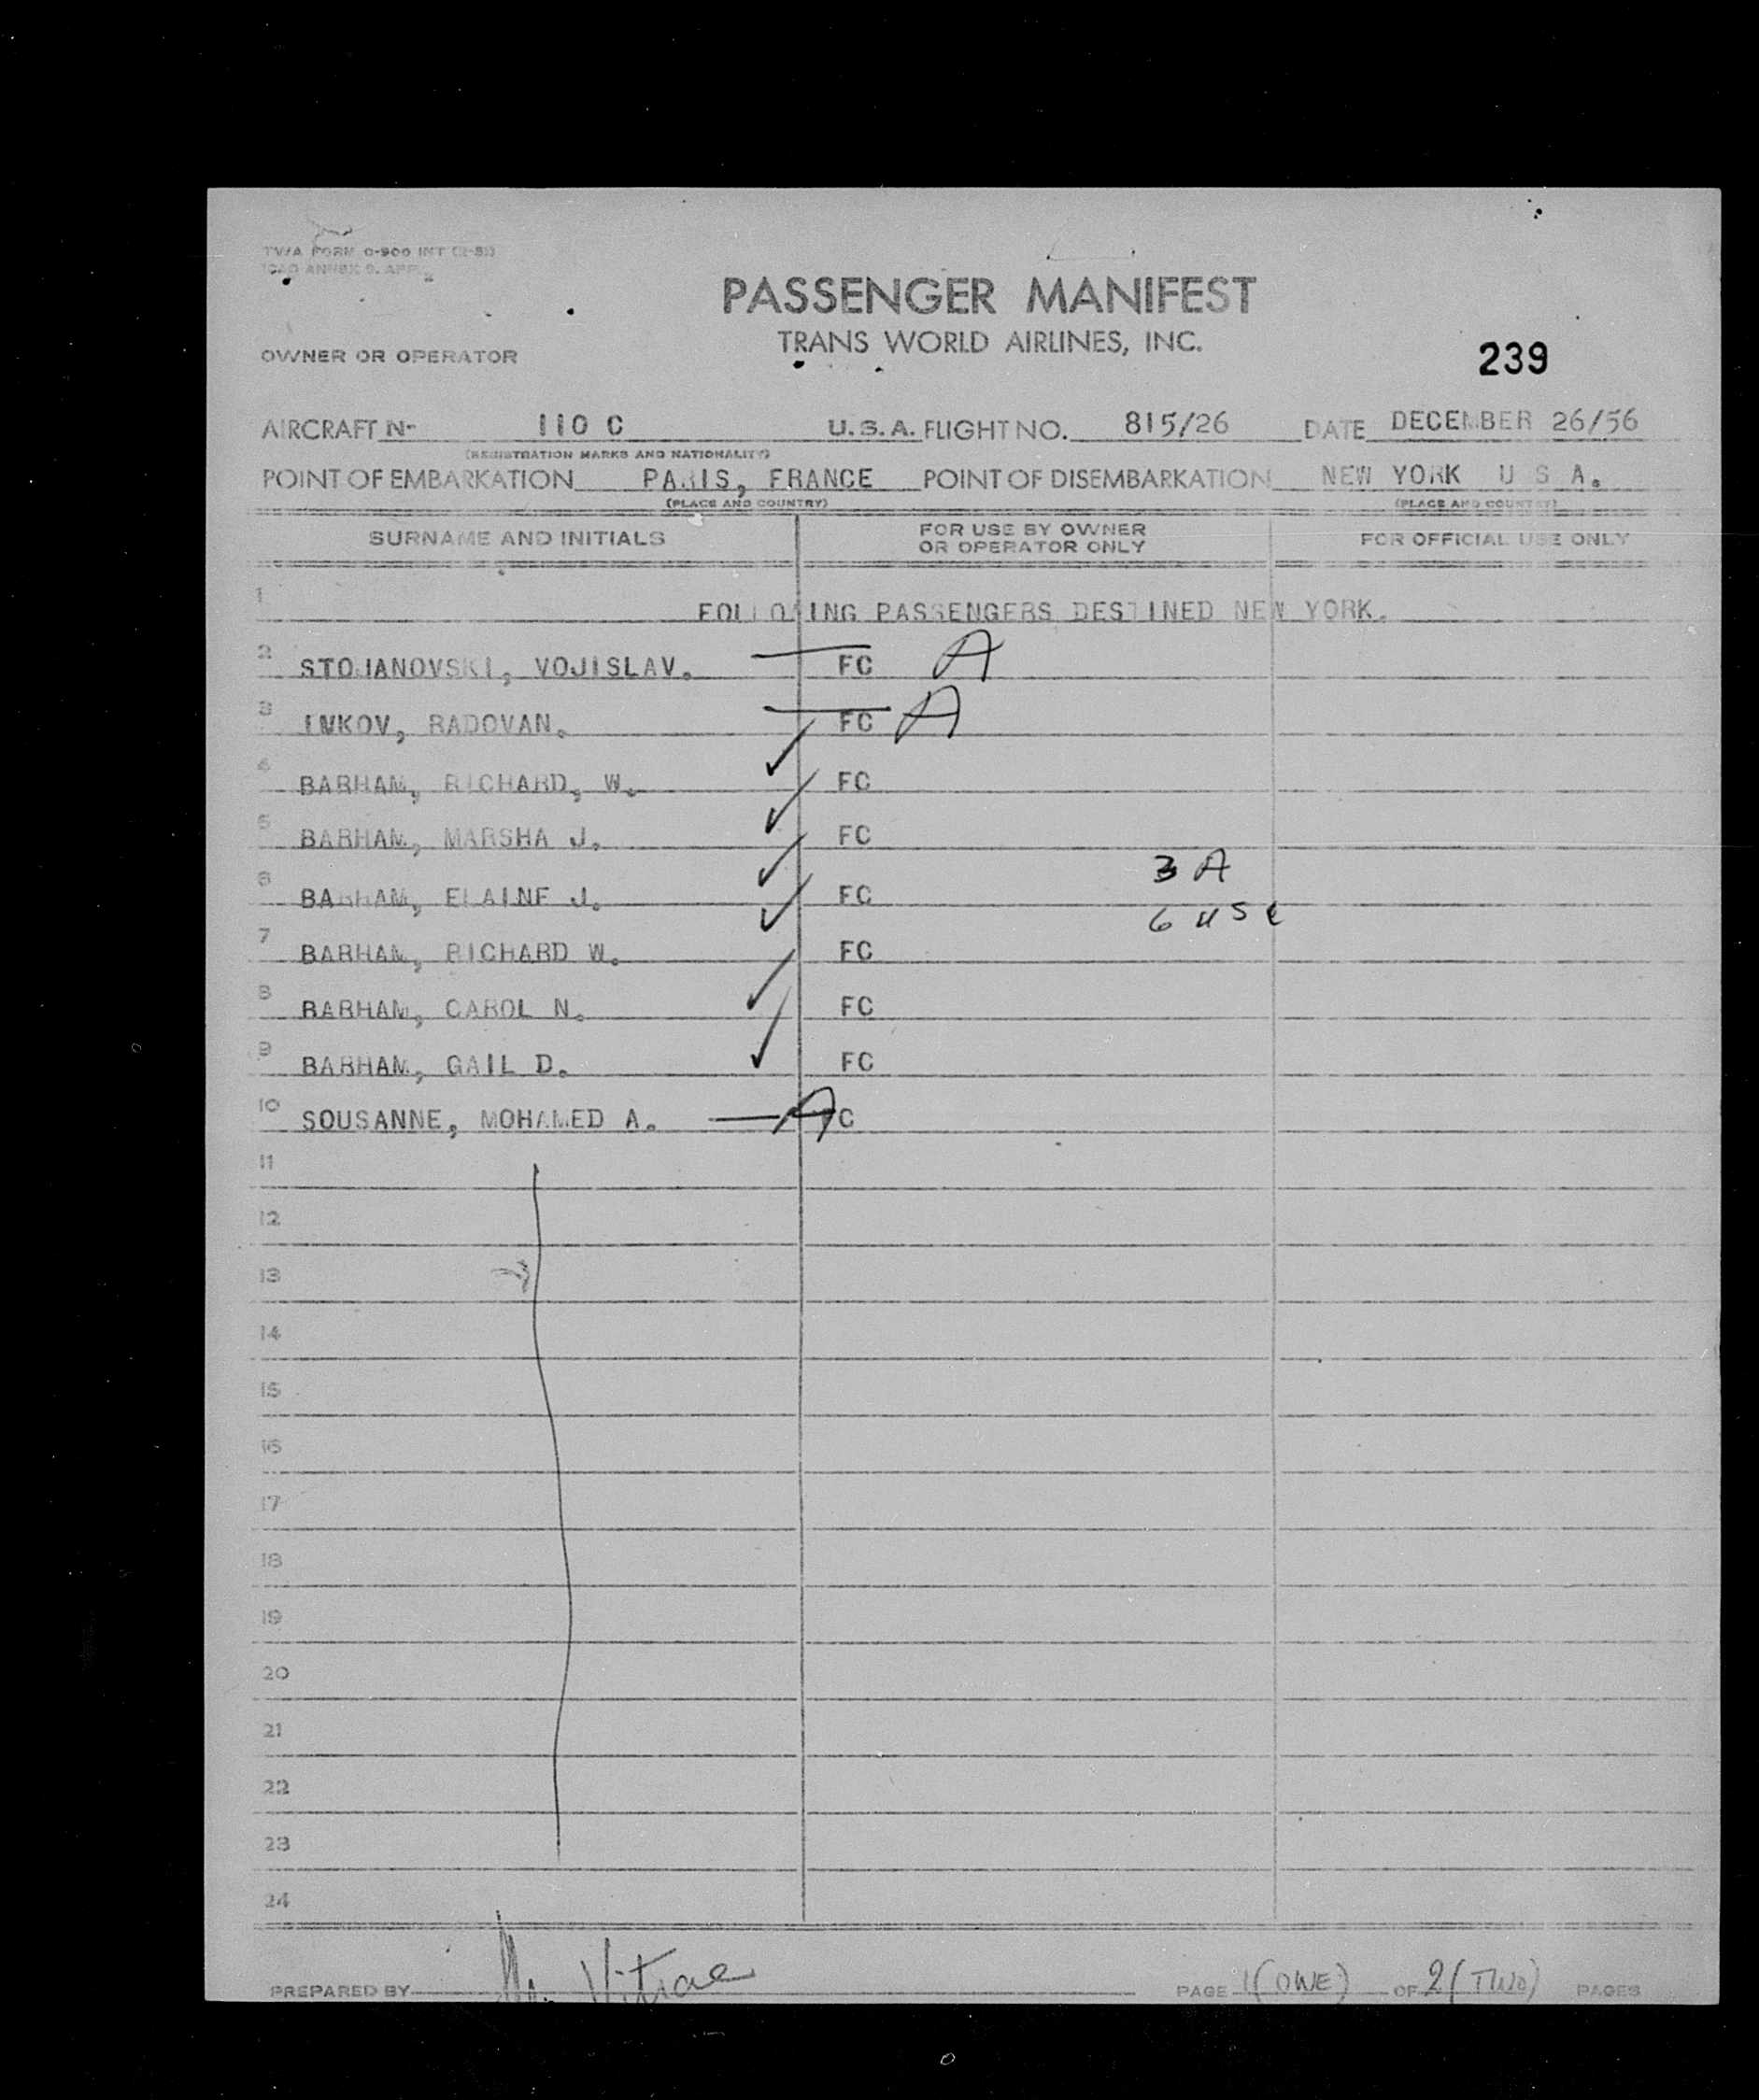 TWA FORM 0-900 INT (2-51)
ICAO ANNEX 9. APP.
PASSENGER MANIFEST
TRANS WORLD AIRLINES, INC.
OWNER OR OPERATOR
239
AIRCRAFT Nº 110 C U.S.A. FLIGHT NO. 815/26 DATE DECEMBER 26/56
(REGISTRATION MARKS AND NATIONALITY)
POINT OF EMBARKATION PARIS, FRANCE POINT OF DISEMBARKATION NEW YORK U S A.
(PLACE AND COUNTRY) (PLACE AND COUNTRY)
SURNAME AND INITIALS FOR USE BY OWNER OR OPERATOR ONLY FOR OFFICIAL USE ONLY
1 FOLLOWING PASSENGERS DESTINED NEW YORK.
2 STOJANOVSKI, VOJISLAV. FC A
3 RADOVAN. FC A
4 BARHAM, RICHARD, W. FC
5 BARHAM, MARSHA J. FC
3 A
6 BARHAM, ELAINE J. FC
6 USC
7 BARHAM, RICHARD W. FC
8 BARHAM, CAROL N. FC
9 BARHAM, GAIL D. FC
10 SOUSANNE, MOHAMED A. A C
11
12
13
14
15
16
17
18
19
20
21
22
23
24
PREPARED BY PAGE 1 (ONE) OF 2 (TWO) PAGES